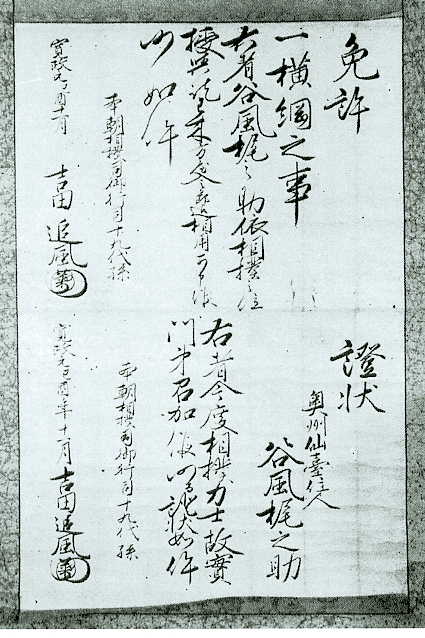 免許
一横綱之事
右者谷風梶之助依相撲之位
授與訖以来方屋入之節迄相用可申候
仍如件
本朝相撲司御行司十九代孫
寛政元己酉十一月 吉田追風
證状
奥州仙臺住人
谷風梶之助
右者今度相撲力士故實
門弟召加候仍證状如件
本朝相撲司御行司十九代孫
寛政元己酉年十一月 吉田追風